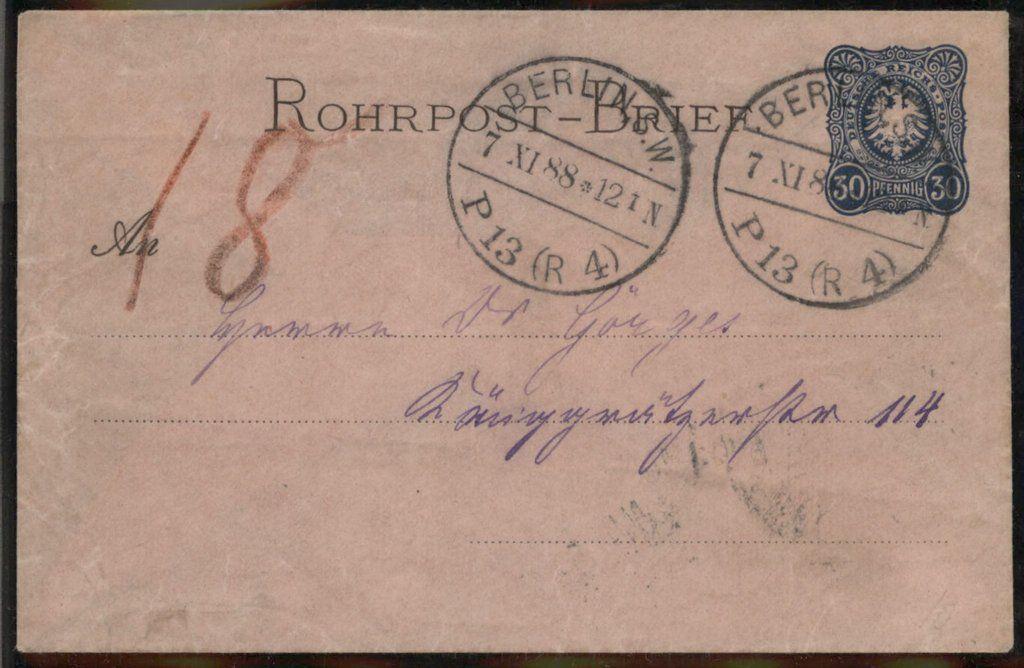 ROHRPOST-BRIEF.
BERLIN, S.W.
7 XI 88 * 12 1 N
P 13 (R 4)
BER
7 XI 8 N
P 13 (R 4)
DEUTSCHE REICHSPOST
30 PFENNIG 30
18
An
Herrn Dr Görges
Königgrätzerstr 114